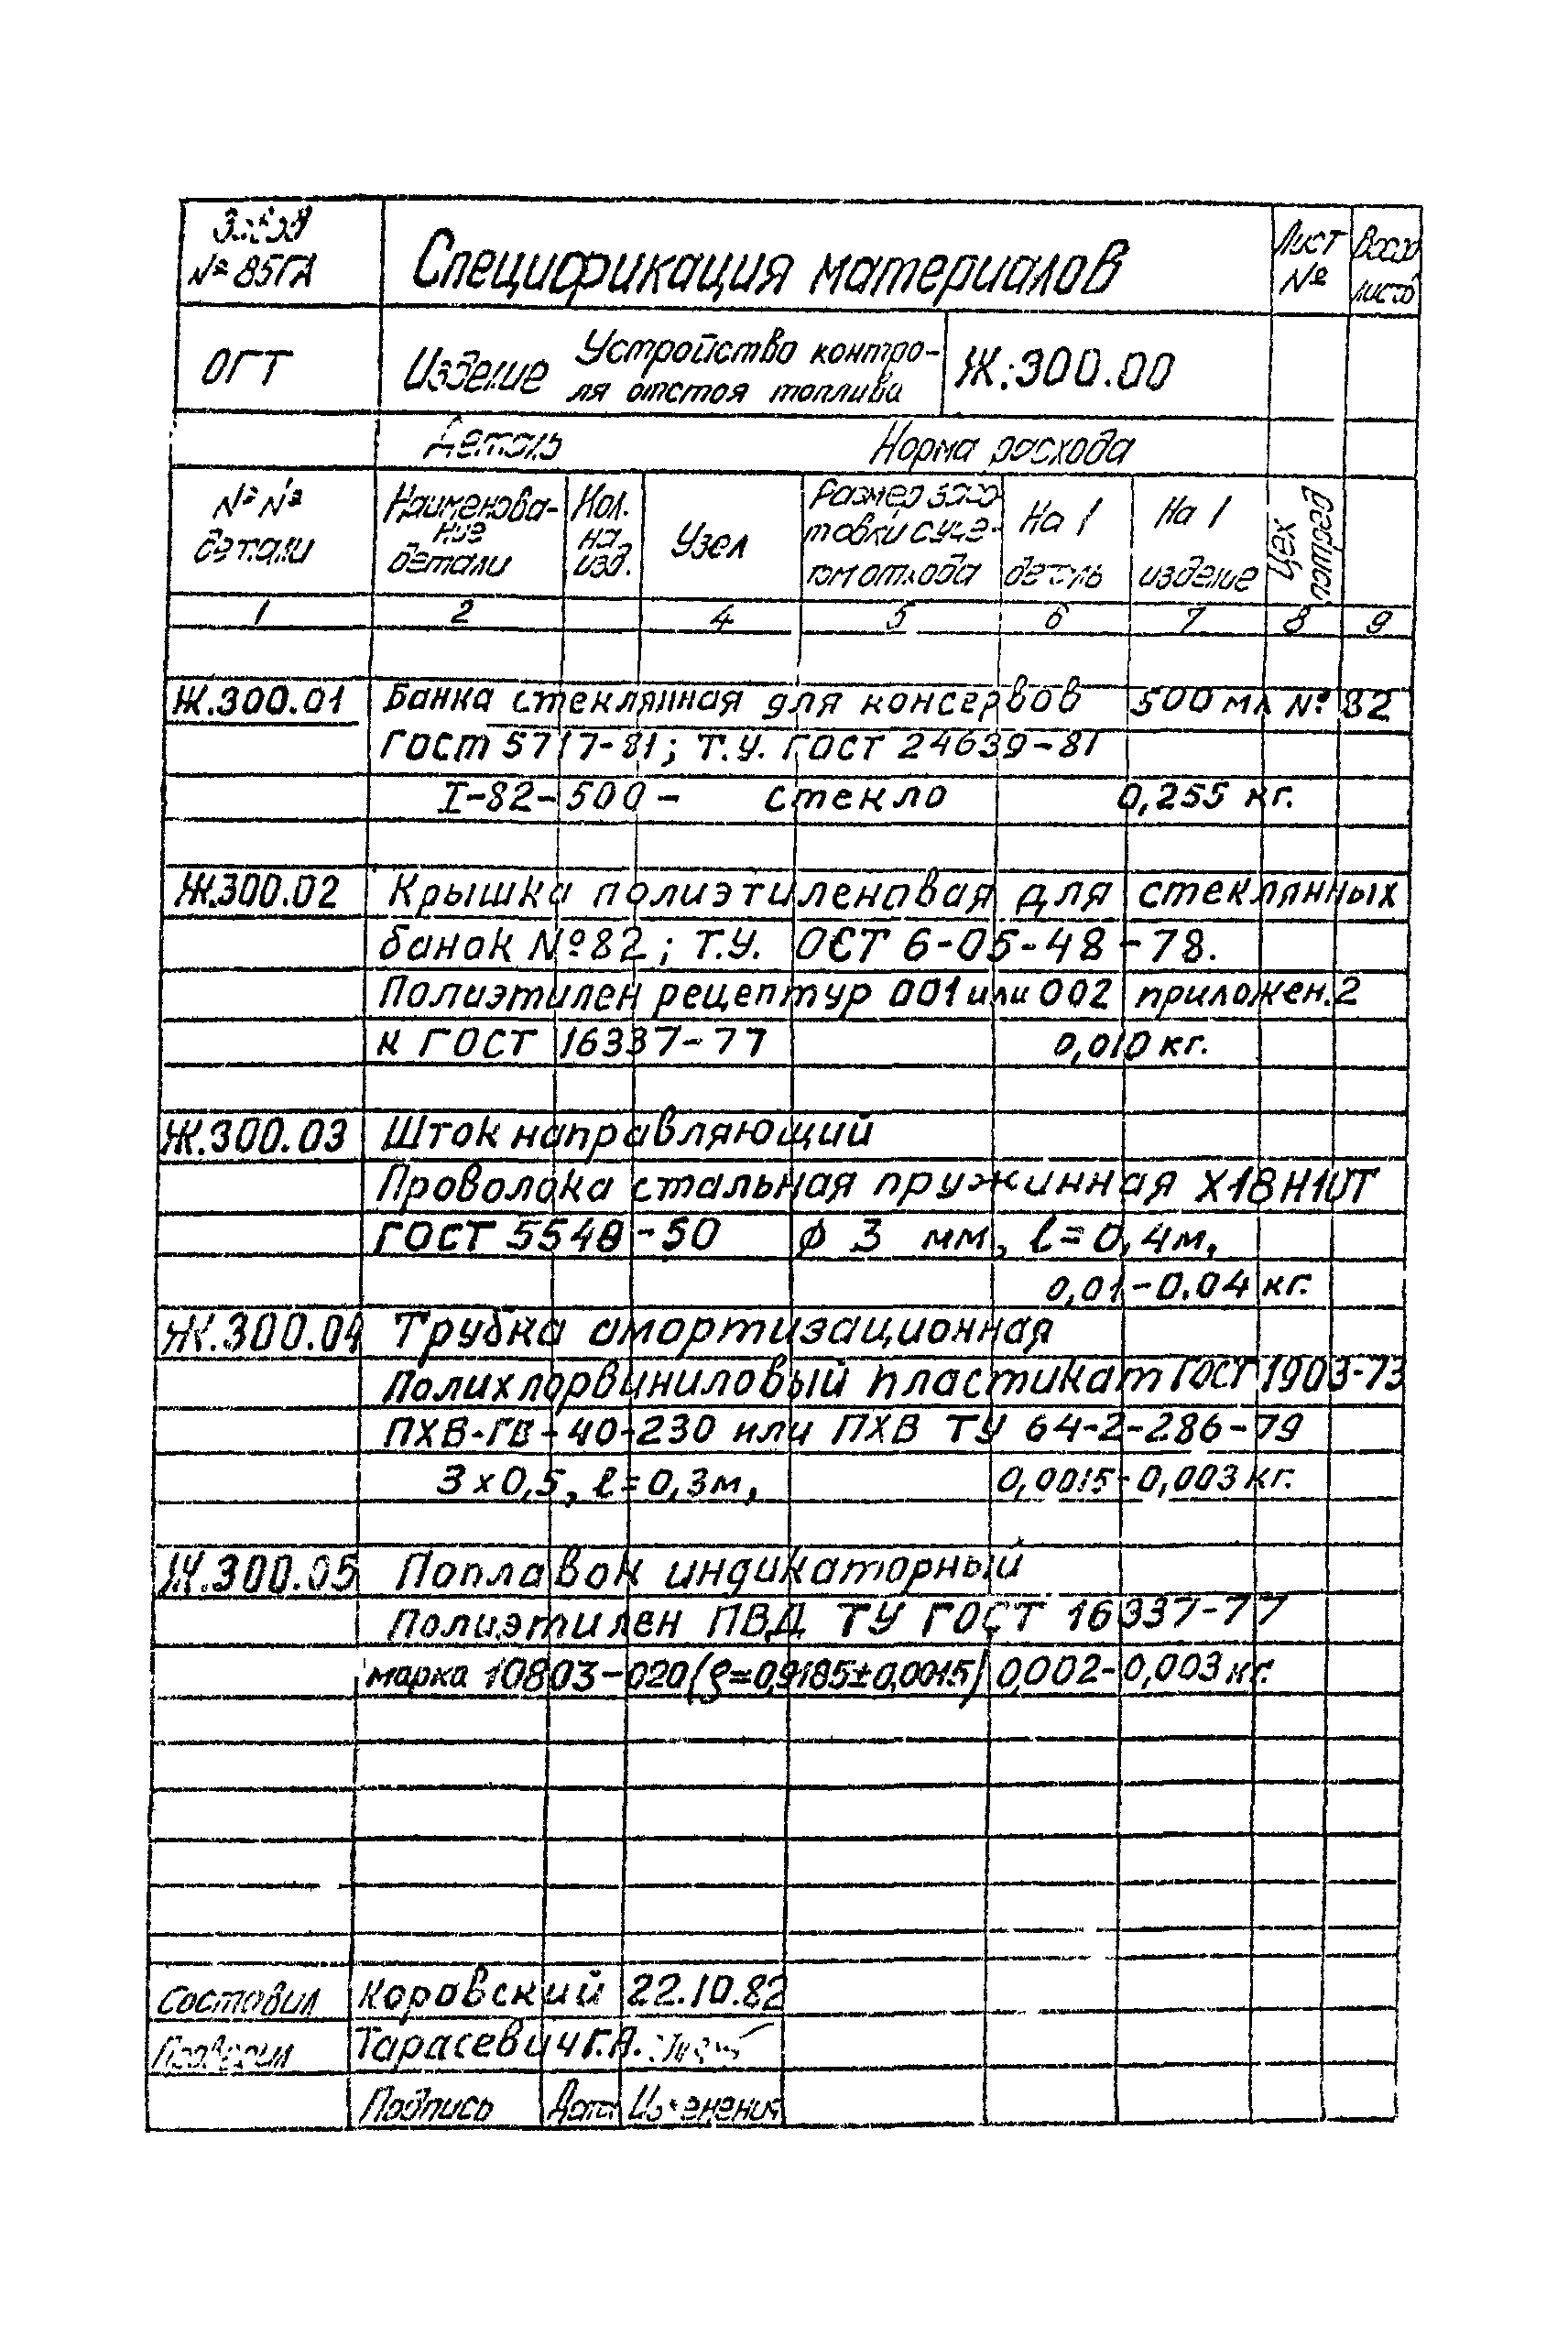 Завод
№ 85ГА
Спецификация материалов
Лист
№
Всего
листов
ОГТ
Изделие
Устройство контро-
ля отстоя топлива
Ж.300.00
Деталь
Норма расхода
№ №
детали
Наименова-
ние
детали
Кол.
на
изд.
Узел
Размер заго
товки с уче-
том отхода
На 1
деталь
На 1
изделие
Цех
потреб
1 2 4 5 6 7 8 9
Ж.300.01 Банка стеклянная для консервов 500 мл № 82
ГОСТ 5717-81; Т.У. ГОСТ 24639-81
I-82-500- стекло 0,255 кг.
Ж.300.02 Крышка полиэтиленовая для стеклянных
банок №82; Т.У. ОСТ 6-05-48-78.
Полиэтилен рецептур 001 или 002 приложен.2
к ГОСТ 16337-77 0,010 кг.
Ж.300.03 Шток направляющий
Проволока стальная пружинная Х18Н10Т
ГОСТ 5548-50 ϕ 3 мм, l=0,4м,
0,01-0.04 кг.
Ж.300.04 Трубка амортизационная
Полихлорвиниловый пластикат ГОСТ 1903-73
ПХВ-ГВ-40-230 или ПХВ ТУ 64-2-286-79
3х0,5, l=0,3м, 0,0015-0,003 кг.
Ж.300.05 Поплавок индикаторный
Полиэтилен ПВД ТУ ГОСТ 16337-77
марка 10803-020(ρ=0,9185±0,0015) 0,002-0,003 кг.
Составил Коровский 22.10.82
Проверил Тарасевич Г.А.
Подпись Дата Изменения